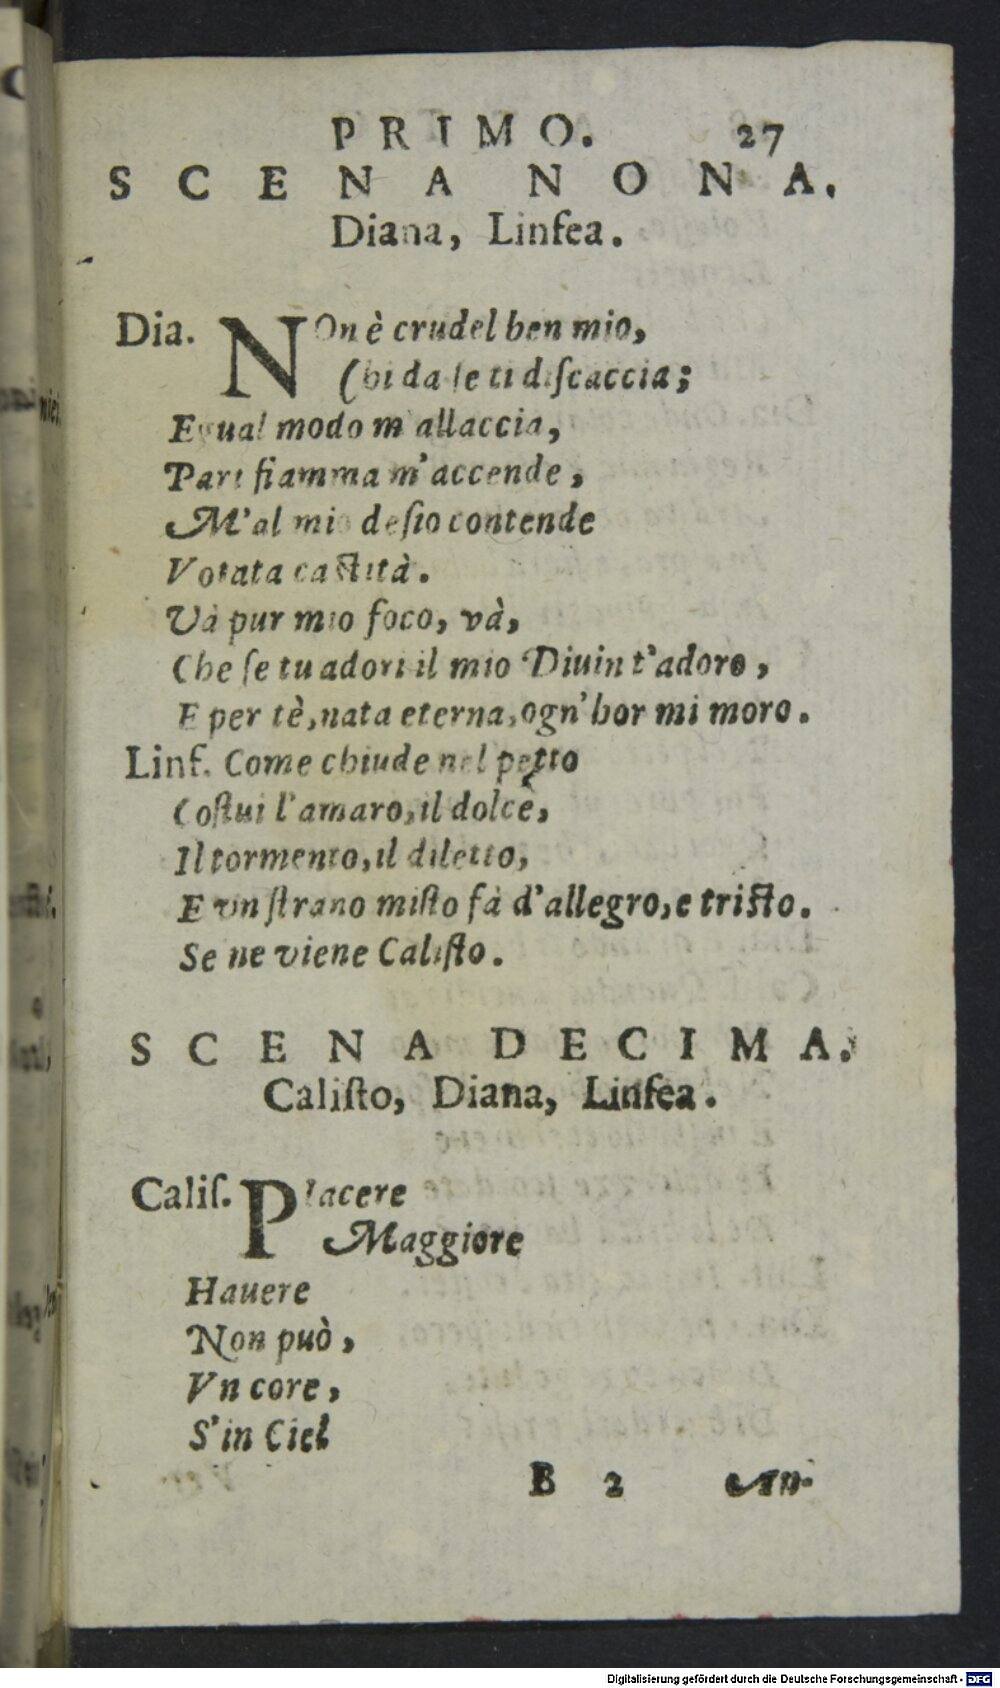 PRIMO. 27
SCENA NONA.
Diana, Linfea.
Dia. NOn è crudel ben mio,
Chi da se ti discaccia;
Egual modo m'allaccia,
Pari fiamma m'accende,
M'al mio desio contende
Votata castità.
Và pur mio foco, và,
Che se tu adori il mio Diuin t'adoro,
E per tè, nata eterna, ogn'hor mi moro.
Linf. Come chiude nel petto
Costui l'amaro, il dolce,
Il tormento, il diletto,
E vn strano misto fà d'allegro, e tristo.
Se ne viene Calisto.
SCENA DECIMA.
Calisto, Diana, Linfea.
Calis. Placere
Maggiore
Hauere
Non può,
Vn core,
S'in Ciel
B 2
Digitalisierung gefördert durch die Deutsche Forschungsgemeinschaft - DFG